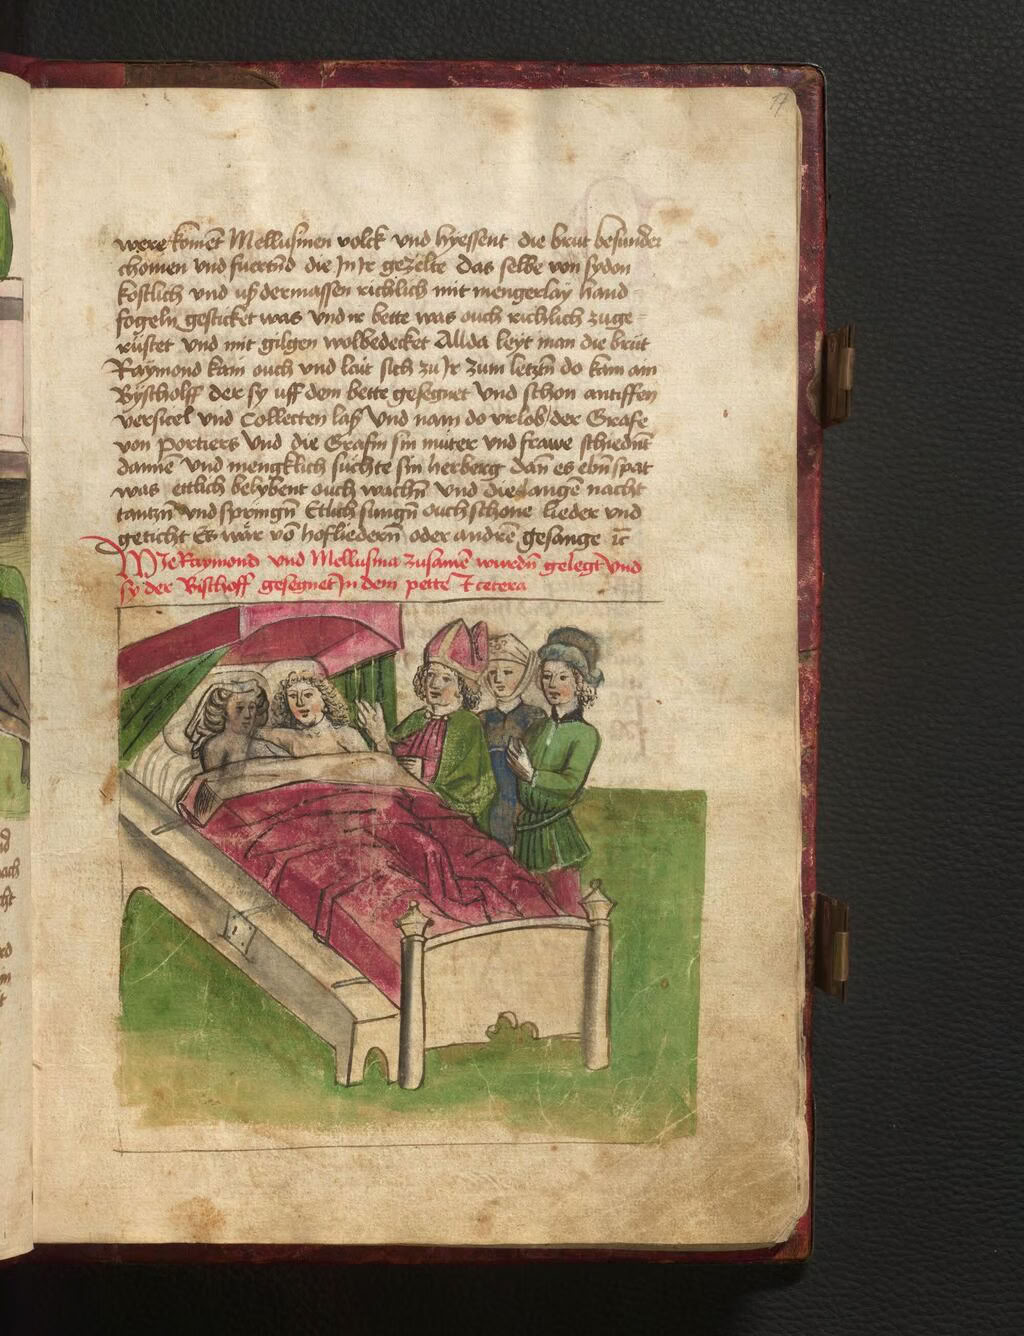 17
were komēt Mellusinen volck vnd hyessent die brut besunder
chomen vnd fuertñd die Jn Jr gezelte das selbe von sydon
kostlich vnd vß dermassen richlich mit mengerlay hand=
fogeln gesticket was vnd ir bette was ouch richlich zuge=
rüstet vnd mit gilgen wolbedecket Allda leyt man die brüt
Raymond kam ouch vnd lait sich zu Jr zum letzñ do kam ain
Byscholff der sy uff dem bette gesegnet vnd schon antiffen
versicel vnd Collecten laß vnd nam do vrlob der Grafe
von Portiers vnd die Grafin sin müter vnd frawe schiednt
dannē vnd mengklich suchte sin herberg dañ es ebñ spat
was ettlich belybent ouch wachñ vnd die langē nacht
tantzñ vnd springñ Etlich sungñ ouch schone lieder vnd
geticht Es wär vō hofliedern oder andrē gesange ꝛc
WJe Raymond vnd Mellusina zusamē wurdñ gelegt vnd
sy der Bischoff gesegnet Jn dem pette Et cetera